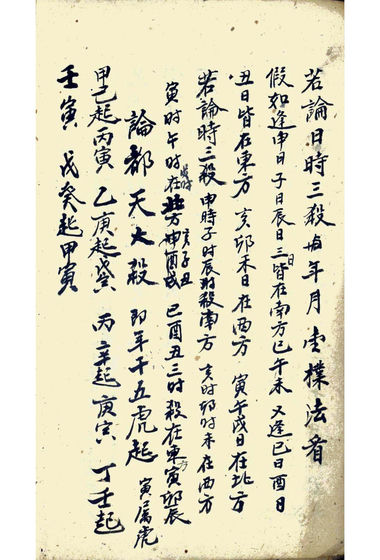 若論日時三殺与年月法看
假如逢申日子日辰日三日皆在南方巳午未 又逢巳日酉日
丑日皆在東方 亥卯未日在西方 寅午戌日在北方
若論時三殺 申時子时辰时殺南方 亥时卯时未在西方
寅时午时戌时在北方亥子丑 申酉戌 巳酉丑三时殺在東方寅卯辰
論都天大殺 即年干五虎起 寅属虎
甲己起丙寅 乙庚起 丙辛起庚寅 丁壬起
壬寅 戊癸起甲寅